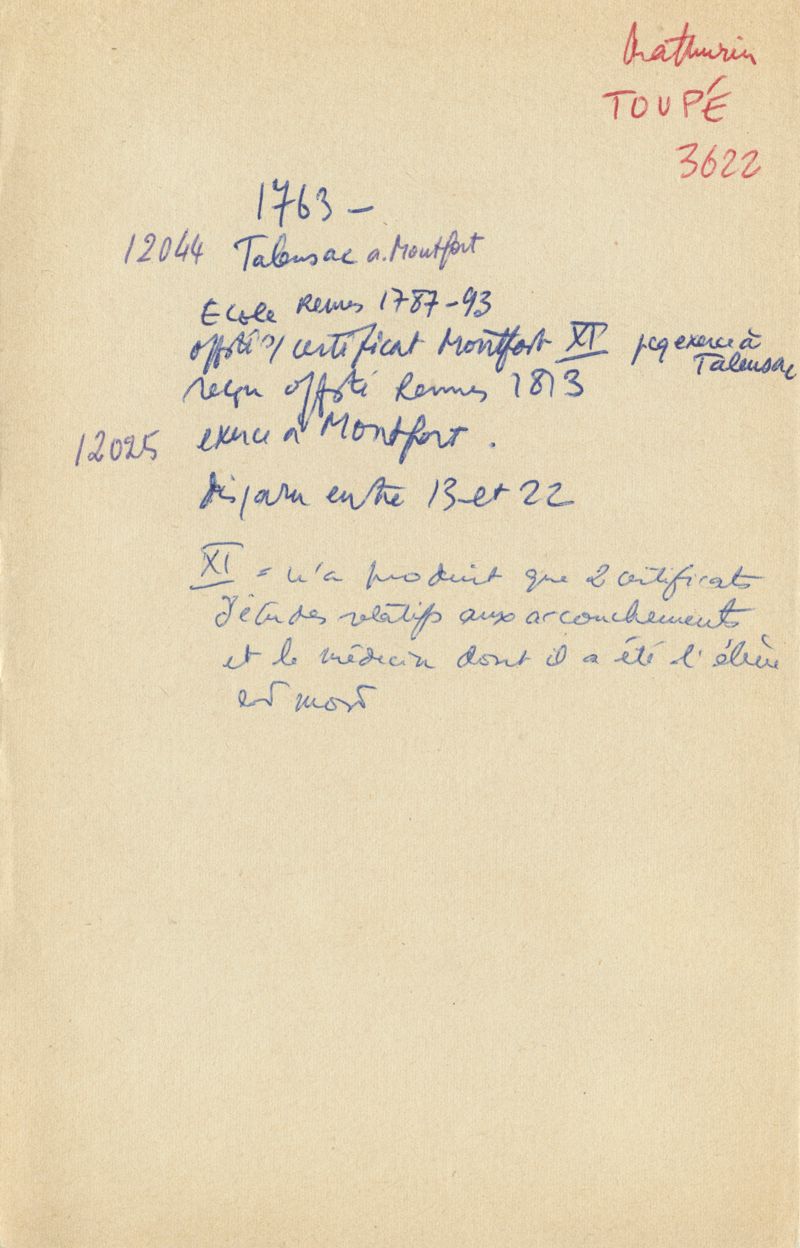 Mathurin
TOUPÉ
3622
1763 –
12044 Talensac a. Montfort
Ecole Rennes 1787-93
offsté s/ certificat Montfort XI exerce à
Talensac
reçu offsté Rennes 1813
12025 exerce à Montfort.
disparu entre 13 et 22
XI = n'a produit que 2 certificats
d'études relatifs aux accouchements
et le médecin dont il a été l'élève
est mort